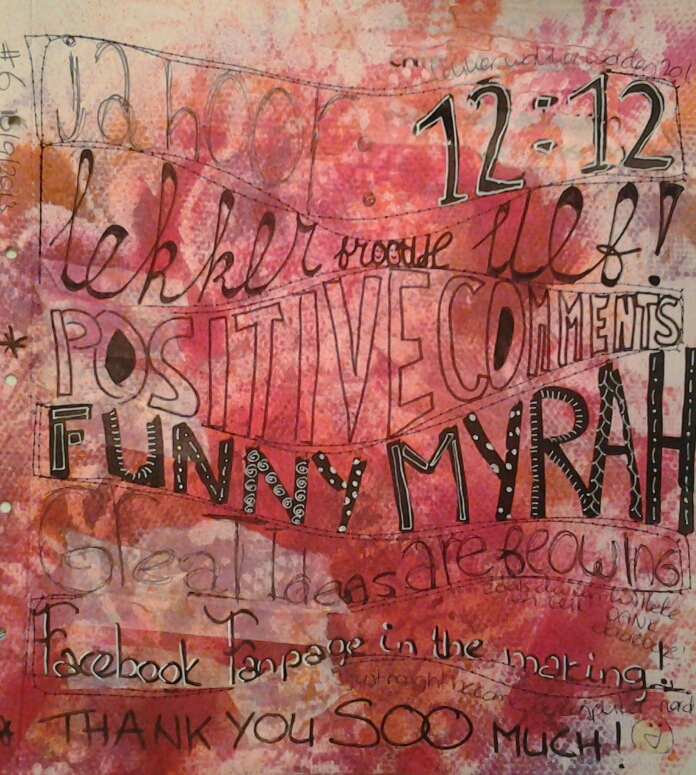 Jahoor: 12:12
lekker broodje lief!
POSITIVE COMMENTS
FUNNY MYRAH
Great Ideas are Blowing
DANK
Facebook Fanpage in the making!
THANK YOU SOO MUCH!